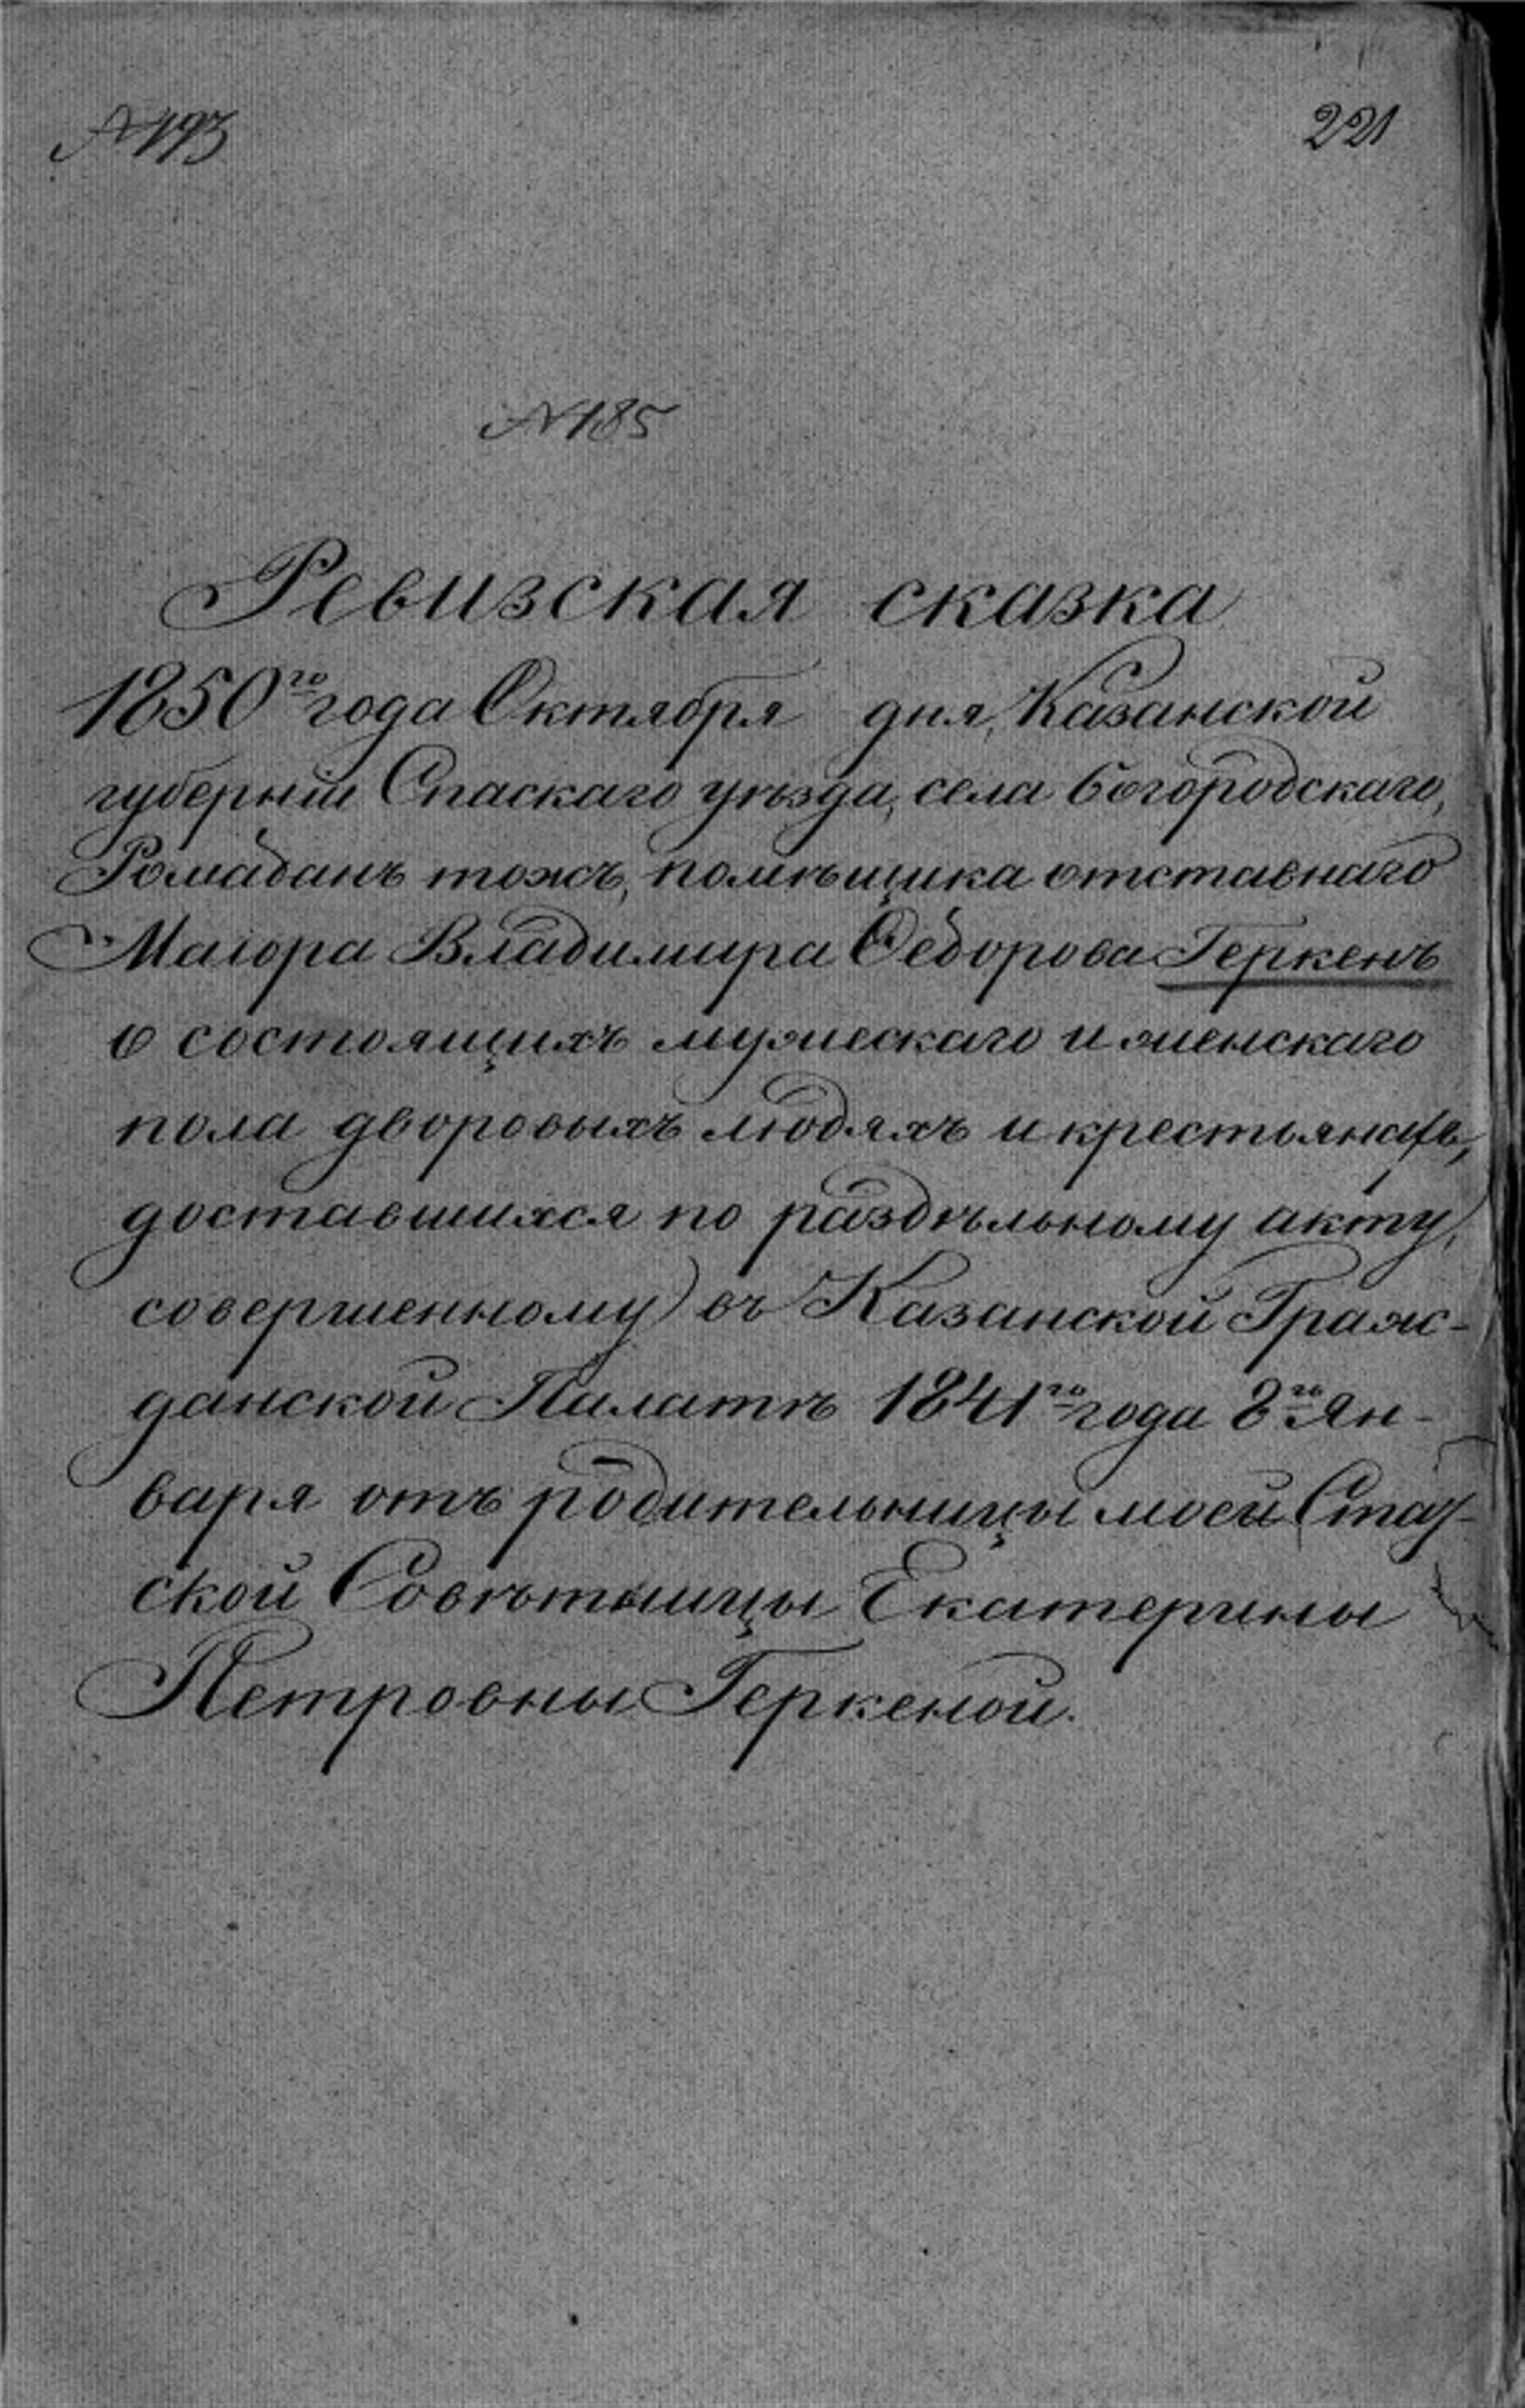 № 193
221
№ 185
Ревизская сказка
1850го года Октября дня, Казанской
губернiи Спаскаго уѣзда, села Богородскаго,
Ромаданъ тожъ, помѣщика отставнаго
Маiора Владимира Ѳедорова Геркенъ
о состоящихъ мужескаго и женскаго
пола дворовыхъ людяхъ и крестьянахъ,
доставшихся по раздѣльному акту,
совершенному въ Казанской Граж-
данской Палатѣ 1841го года 8го Ян-
варя отъ родительницы моей Стат-
ской Совѣтницы Екатерины
Петровны Геркеной.